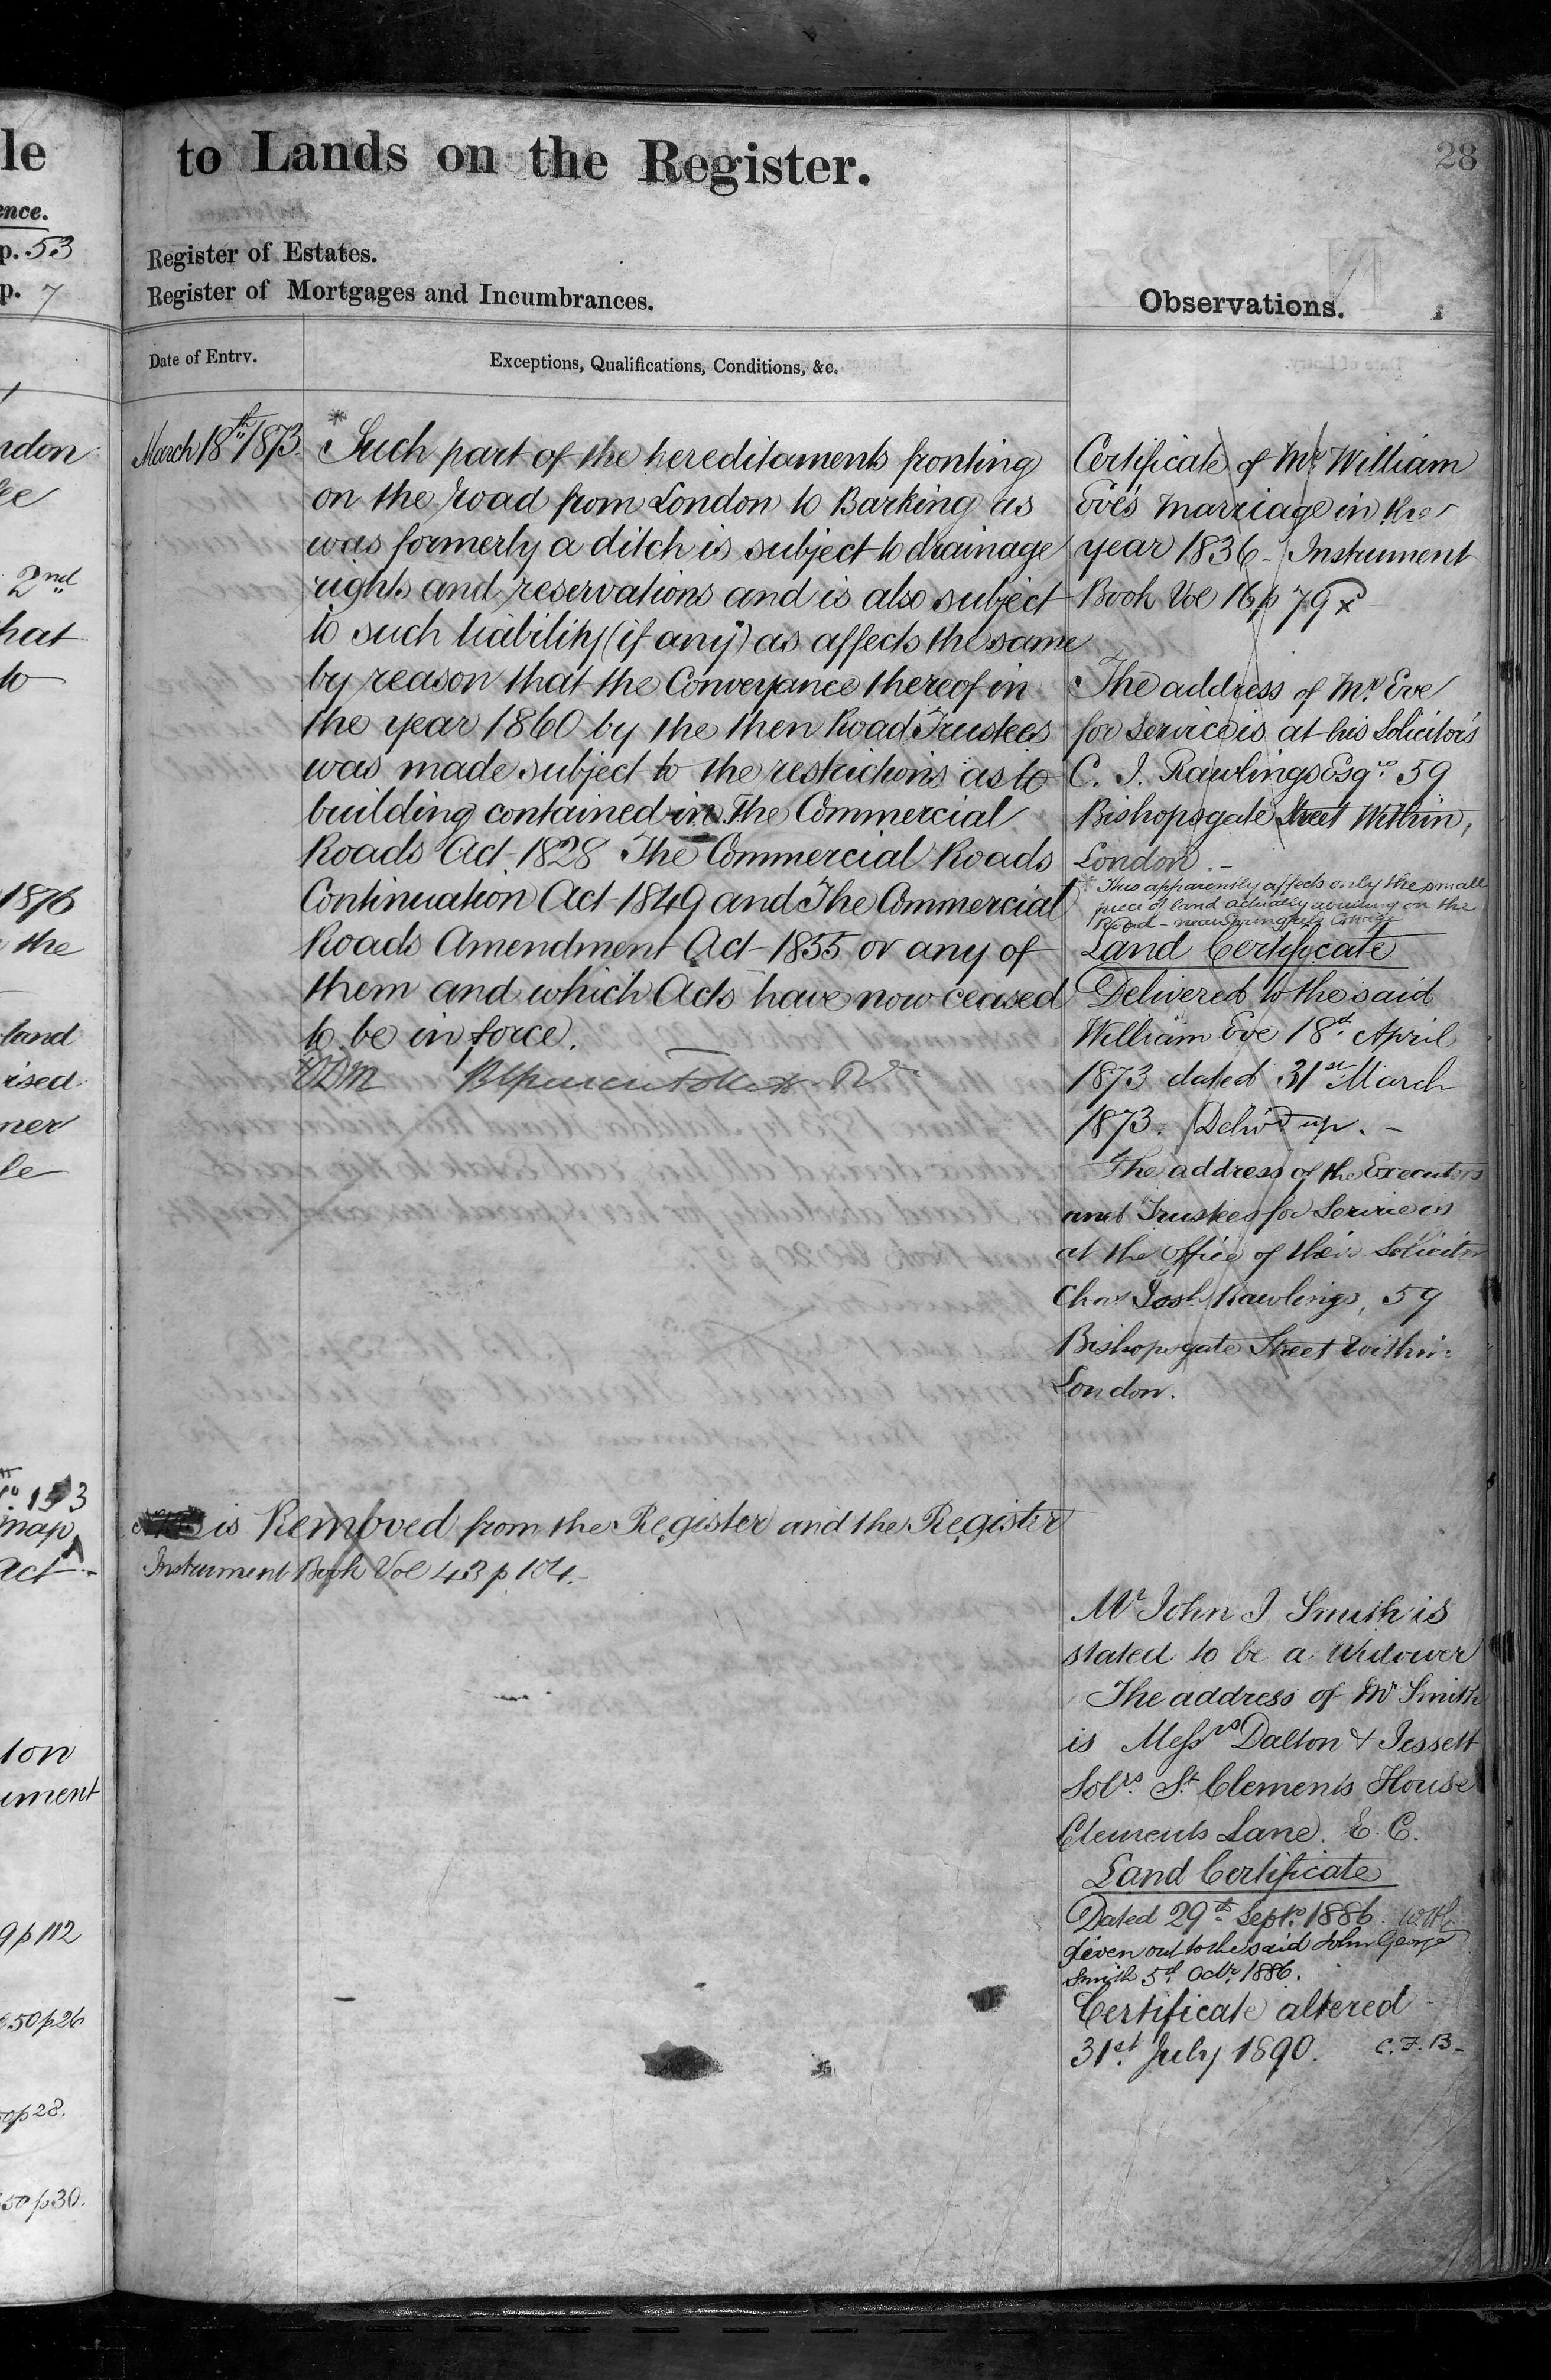 le
ence.
p. 53
p. 7
ndon
2nd
hat
to
1876
the
land
rised
ner
le
153
map
Act
ton
ument
9 p 112
50 p 26
p 28.
50 p 30.
to Lands on the Register.
28
Register of Estates.
Register of Mortgages and Incumbrances.
Observations.
Date of Entry.
Exceptions, Qualifications, Conditions, &c.
March 18th 1873.
* Such part of the hereditaments fronting
on the road from London to Barking as
was formerly a ditch is subject to drainage
rights and reservations and is also subject
to such liability (if any) as affects the same
by reason that the Conveyance thereof in
the year 1860 by the then Road Trustees
was made subject to the restrictions as to
building contained in The Commercial
Roads Act 1828 The Commercial Roads
Continuation Act 1849 and The Commercial
Roads Amendment Act 1855 or any of
them and which Acts have now ceased
to be in force.
is Removed from the Register and the Register
Instrument Book Vol 43 p 104.
Certificate of Mr. William
Eve's marriage in the
year 1836 - Instrument
Book Vol 16 p 79
The address of Mr. Eve
for service is at his Solicitor's
C. J. Rawlings Esqre 59
Bishopsgate Street Within,
London. -
* This apparently affects only the small
piece of land actually abutting on the
Road - near Springfield Cottage
Land Certificate
Delivered to the said
William Eve 18th April
1873 dated 31st March
1873. Deliv'd up. -
The address of the Executors
and Trustees for Service is
at the office of their Solicitor
Chas Josh Rawlings, 59
Bishopsgate Street Within
London.
Mr John J Smith is
stated to be a Widower
The address of Mr Smith
is Messrs Dalton & Jessett
Solrs. St. Clements House
Clements Lane. E. C.
Land Certificate
Dated 29th Septr. 1886.
given out to the said John George
Smith 5th Octr. 1886.
Certificate altered
31st July 1890. C. F. B.